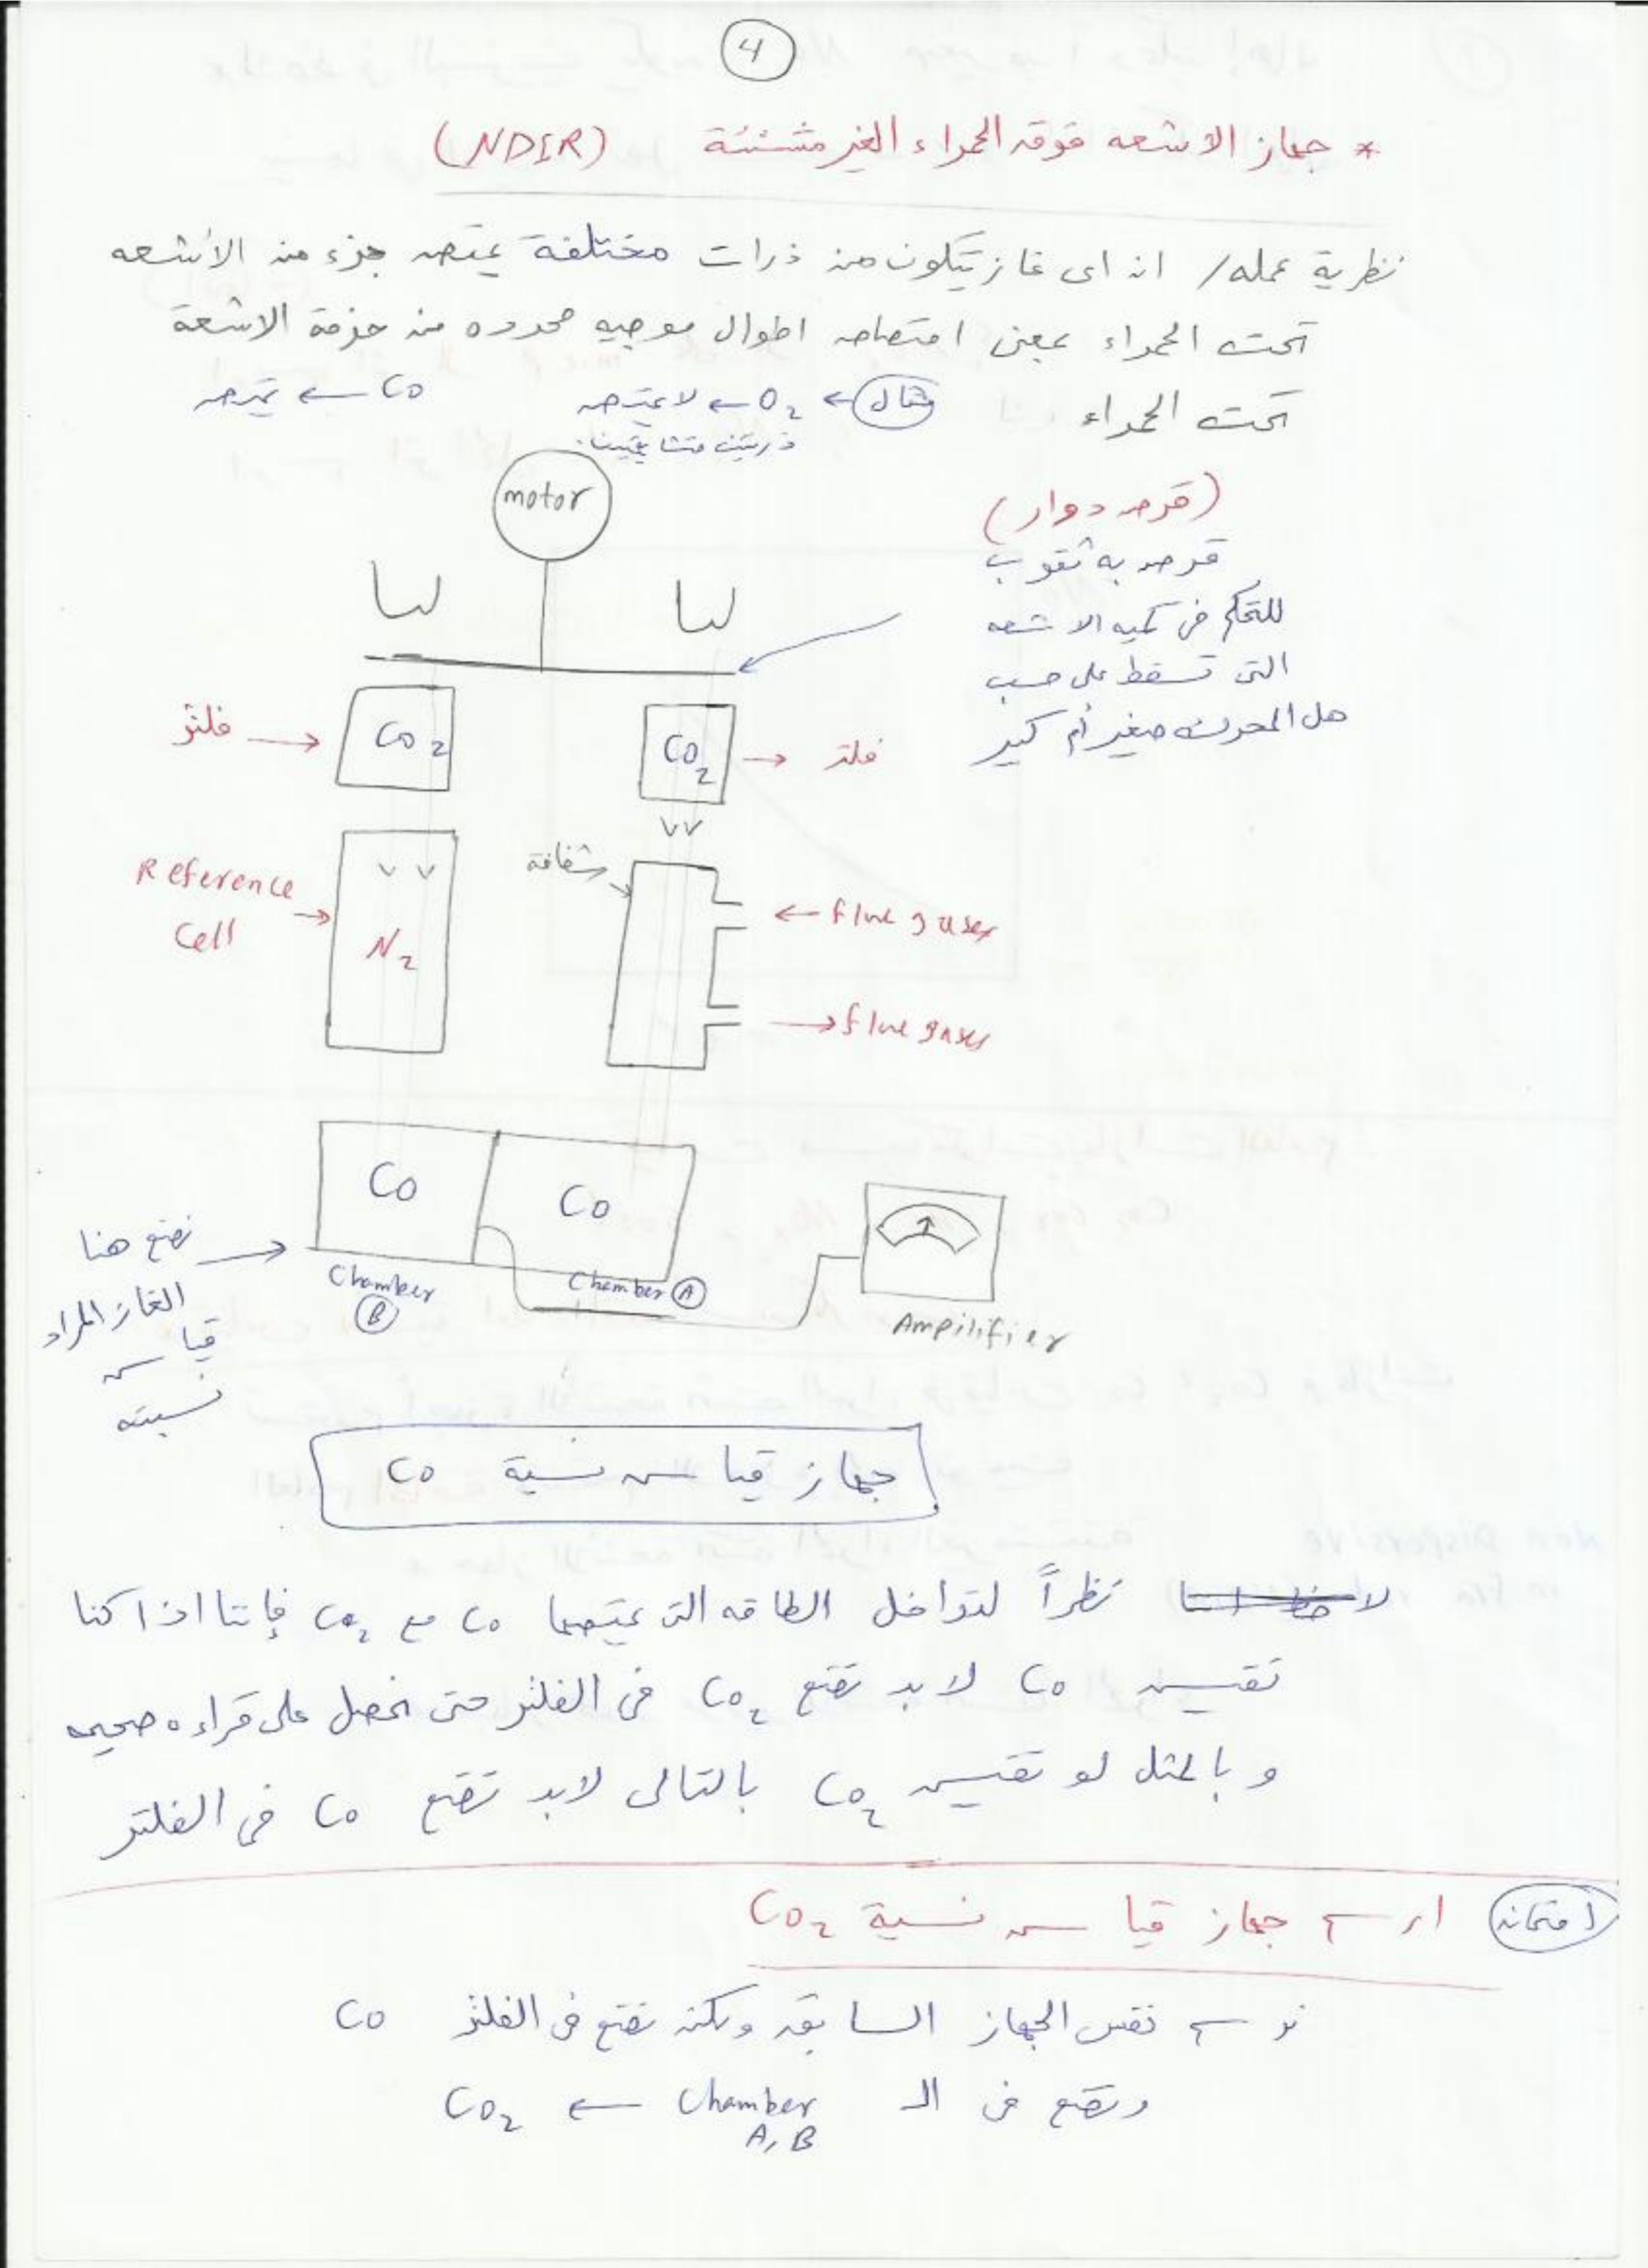 4
* جهاز الاشعه فوق الحمراء الغير مشتتة (NDIR)
نظرية عمله / ان اى غاز يتكون من ذرات مختلفة يمتص جزء من الأشعه
تحت الحمراء بمعنى امتصاص اطوال موجيه محدده من حزمة الاشعة
تحت الحمراء مثال ← O2 ← لا يمتص CO ← يمتص
ذرتين متشابهتين
motor
(قرص دوار)
قرص به ثقوب
للتحكم فى كميه الاشعه
التى تسقط على حسب
هل المحرك صغير أم كبير
فلتر → CO2
CO2 → فلتر
Reference
Cell →
N2
شفافة
← flue gases
→ flue gases
CO
CO
نضع هنا
الغاز المراد
قياس
نسبته
Chamber
B
Chamber A
Ampilifier
جهاز قياس نسبة CO
نظراً لتداخل الطاقه التى يمتصها CO مع CO2 فإننا اذا كنا
نقيس CO لابد نضع CO2 فى الفلتر حتى نحصل على قراءه صحيحه
و بالمثل لو نقيس CO2 بالتالى لابد نضع CO فى الفلتر
امتحان ارسم جهاز قياس نسبة CO2
نرسم نفس الجهاز السابق ولكن نضع فى الفلتر CO
ونضع فى الـ Chamber ← CO2
A, B